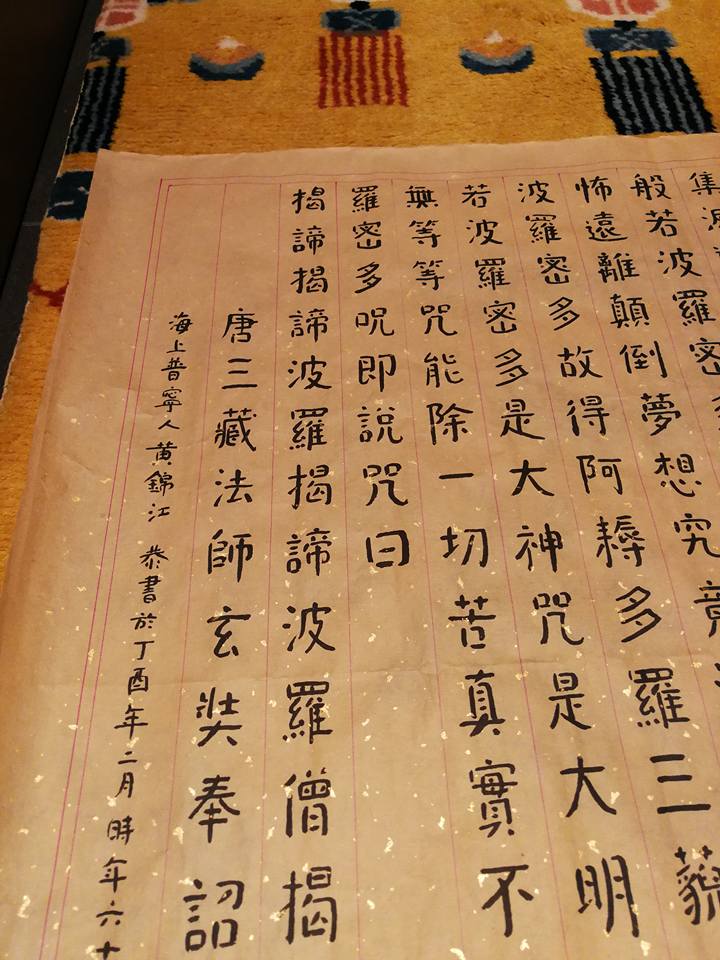 集
般若波羅密
怖遠離顛倒夢想究竟
波羅密多故得阿耨多羅三藐
若波羅密多是大神咒是大明
無等等咒能除一切苦真實不
羅密多呪即說咒曰
揭諦揭諦波羅揭諦波羅僧揭
唐三藏法師玄奘奉詔
海上普寧人黃錦江 恭書於丁酉年二月時年六十